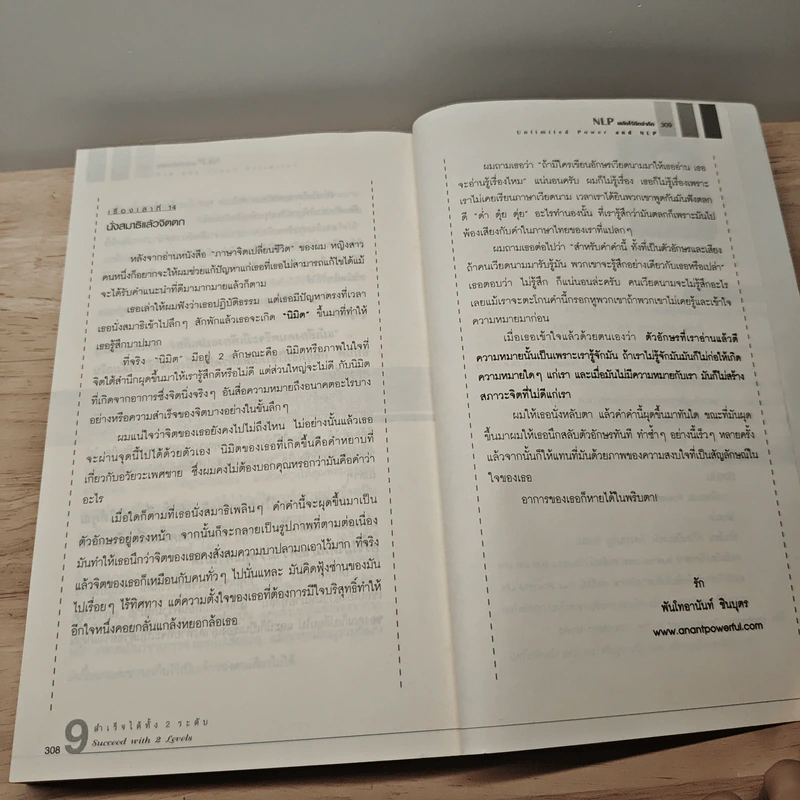 เรื่องเล่าที่ 14
นั่งสมาธิแล้วจิตตก
หลังจากอ่านหนังสือ "ภาษาจิตเปลี่ยนชีวิต" ของผม หญิงสาว
คนหนึ่งก็อยากจะให้ผมช่วยแก้ปัญหาแก่เธอที่เธอไม่สามารถแก้ไขได้แม้
จะได้รับคำแนะนำที่ดีมามากมายแล้วก็ตาม
เธอเล่าให้ผมฟังว่าเธอปฏิบัติธรรม แต่เธอมีปัญหาตรงที่เวลา
เธอนั่งสมาธิเข้าไปลึกๆ สักพักแล้วเธอจะเกิด "นิมิต" ขึ้นมาที่ทำให้
เธอรู้สึกบาปมาก
ที่จริง "นิมิต" มีอยู่ 2 ลักษณะคือ นิมิตหรือภาพในใจที่
จิตใต้สำนึกผุดขึ้นมาให้เรารู้สึกดีหรือไม่ดี แต่ส่วนใหญ่จะไม่ดี กับนิมิต
ที่เกิดจากอาการซึ่งจิตนิ่งจริงๆ อันสื่อความหมายถึงอนาคตอะไรบาง
อย่างหรือความสำเร็จของจิตบางอย่างในขั้นลึกๆ
ผมแน่ใจว่าจิตของเธอยังคงไปไม่ถึงไหน ไม่อย่างนั้นแล้วเธอ
จะผ่านจุดนี้ไปได้ด้วยตัวเอง นิมิตของเธอที่เกิดขึ้นคือคำหยาบที่
เกี่ยวกับอวัยวะเพศชาย ซึ่งผมคงไม่ต้องบอกคุณหรอกว่ามันคือคำว่า
อะไร
เมื่อใดก็ตามที่เธอนั่งสมาธิเพลินๆ คำคำนี้จะผุดขึ้นมาเป็น
ตัวอักษรอยู่ตรงหน้า จากนั้นก็จะกลายเป็นรูปภาพที่ตามต่อเนื่อง
มันทำให้เธอนึกว่าจิตของเธอคงสั่งสมความบาปลามกเอาไว้มาก ที่จริง
แล้วจิตของเธอก็เหมือนกับคนทั่วๆ ไปนั่นแหละ มันคิดฟุ้งซ่านของมัน
ไปเรื่อยๆ ไร้ทิศทาง แต่ความตั้งใจของเธอที่ต้องการมีใจบริสุทธิ์ทำให้
อีกใจหนึ่งคอยกลั่นแกล้งหยอกล้อเธอ
308 9 สำเร็จได้ทั้ง 2 ระดับ
Succeed with 2 Levels
NLP พลังไร้ขีดจำกัด 309
Unlimited Power and NLP
ผมถามเธอว่า "ถ้ามีใครเขียนอักษรเวียดนามมาให้เธออ่าน เธอ
จะอ่านรู้เรื่องไหม" แน่นอนครับ ผมก็ไม่รู้เรื่อง เธอก็ไม่รู้เรื่องเพราะ
เราไม่เคยเรียนภาษาเวียดนาม เวลาเราได้ยินพวกเขาพูดกันมันฟังตลก
ดี "ดำ ดุ่ย ดุ่ย" อะไรทำนองนั้น ที่เรารู้สึกว่ามันตลกก็เพราะมันไป
พ้องเสียงกับคำในภาษาไทยของเราที่แปลกๆ
ผมถามเธอต่อไปว่า "สำหรับคำคำนี้ ทั้งที่เป็นตัวอักษรและเสียง
ถ้าคนเวียดนามมารับรู้มัน พวกเขาจะรู้สึกอย่างเดียวกับเธอหรือเปล่า"
เธอตอบว่า ไม่รู้สึก ก็แน่นอนล่ะครับ คนเวียดนามจะไม่รู้สึกอะไร
เลยแม้เราจะตะโกนคำนี้กรอกหูพวกเขาถ้าพวกเขาไม่เคยรู้และเข้าใจ
ความหมายมาก่อน
เมื่อเธอเข้าใจแล้วด้วยตนเองว่า ตัวอักษรที่เราอ่านแล้วตี
ความหมายนั้นเป็นเพราะเรารู้จักมัน ถ้าเราไม่รู้จักมันมันก็ไม่ก่อให้เกิด
ความหมายใดๆ แก่เรา และเมื่อมันไม่มีความหมายกับเรา มันก็ไม่สร้าง
สภาวะจิตที่ไม่ดีแก่เรา
ผมให้เธอนั่งหลับตา แล้วคำคำนี้ผุดขึ้นมาทันใด ขณะที่มันผุด
ขึ้นมาผมให้เธอนึกสลับตัวอักษรทันที ทำซ้ำๆ อย่างนี้เร็วๆ หลายครั้ง
แล้วจากนั้นก็ให้แทนที่มันด้วยภาพของความสงบใจที่เป็นสัญลักษณ์ใน
ใจของเธอ
อาการของเธอก็หายได้ในพริบตา!
รัก
พันโทอานันท์ ชินบุตร
www.anantpowerful.com